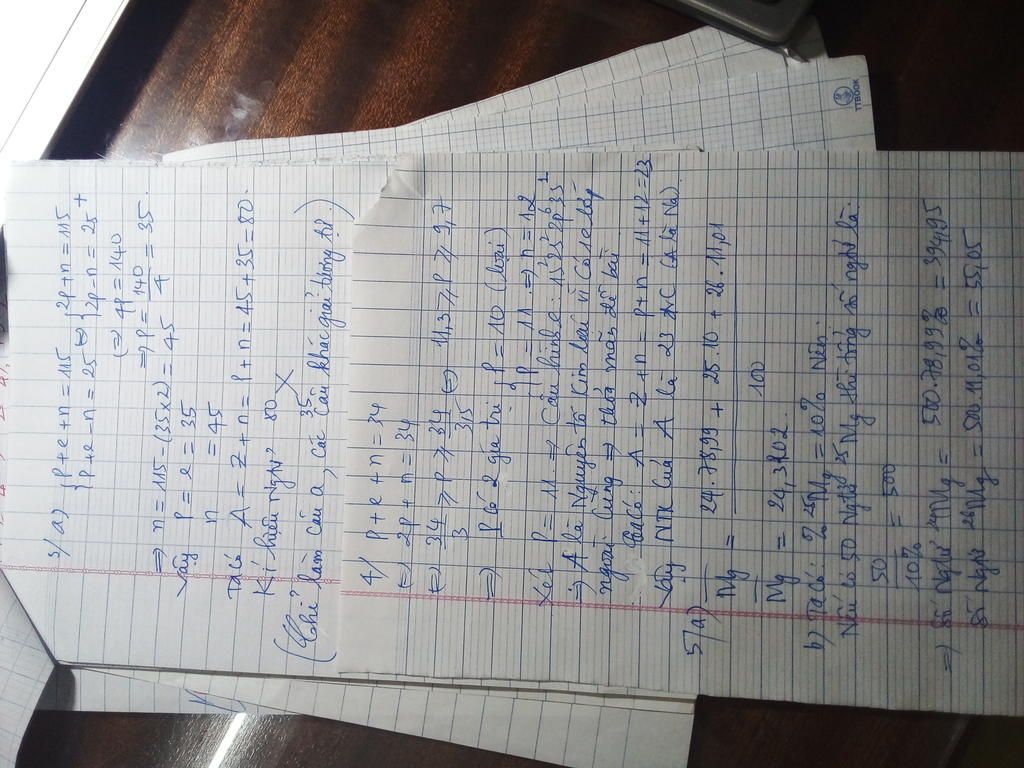 3/ a) { p+e+n = 115
{ p+e-n = 25 ⇔ { 2p+n = 115
{ 2p-n = 25 +
⇔ 4p = 140
⇒ p = 140/4 = 35.
⇒ n = 115 - (35x2) = 45
Vậy p = e = 35
n = 45
Ta có A = Z + n = p + n = 45 + 35 = 80.
Kí hiệu ngtử 80 35 X
(Chỉ làm câu a, các câu khác giải tương tự.)
4/ p + e + n = 34
⇔ 2p + n = 34
⇔ 34/3 ≥ p ≥ 34/3,5 ⇔ 11,3 ≥ p ≥ 9,7
⇒ p có 2 giá trị { p = 10 (loại)
{ p = 11 ⇒ n = 12
Xét p = 11 ⇒ Cấu hình e: 1s² 2s² 2p⁶ 3s¹
⇒ A là nguyên tố kim loại vì có 1e lớp
ngoài cùng ⇒ thoả mãn đề bài
Ta có: A = Z + n = p + n = 11 + 12 = 23
Vậy NTK của A là 23 đvC (A là Na)
5/a) Mg = 24.78,99 + 25.10 + 26.11,01 / 100
Mg = 24,3202
b) Ta có: % ²⁵Mg = 10% Nên
Nếu có 50 ngtử ²⁵Mg thì tổng số ngtử là:
50 / 10% = 500
⇒ Số ngtử ²⁴Mg = 500.78,99% = 394,95
Số ngtử ²⁶Mg = 500.11,01% = 55,05
TTBOOK